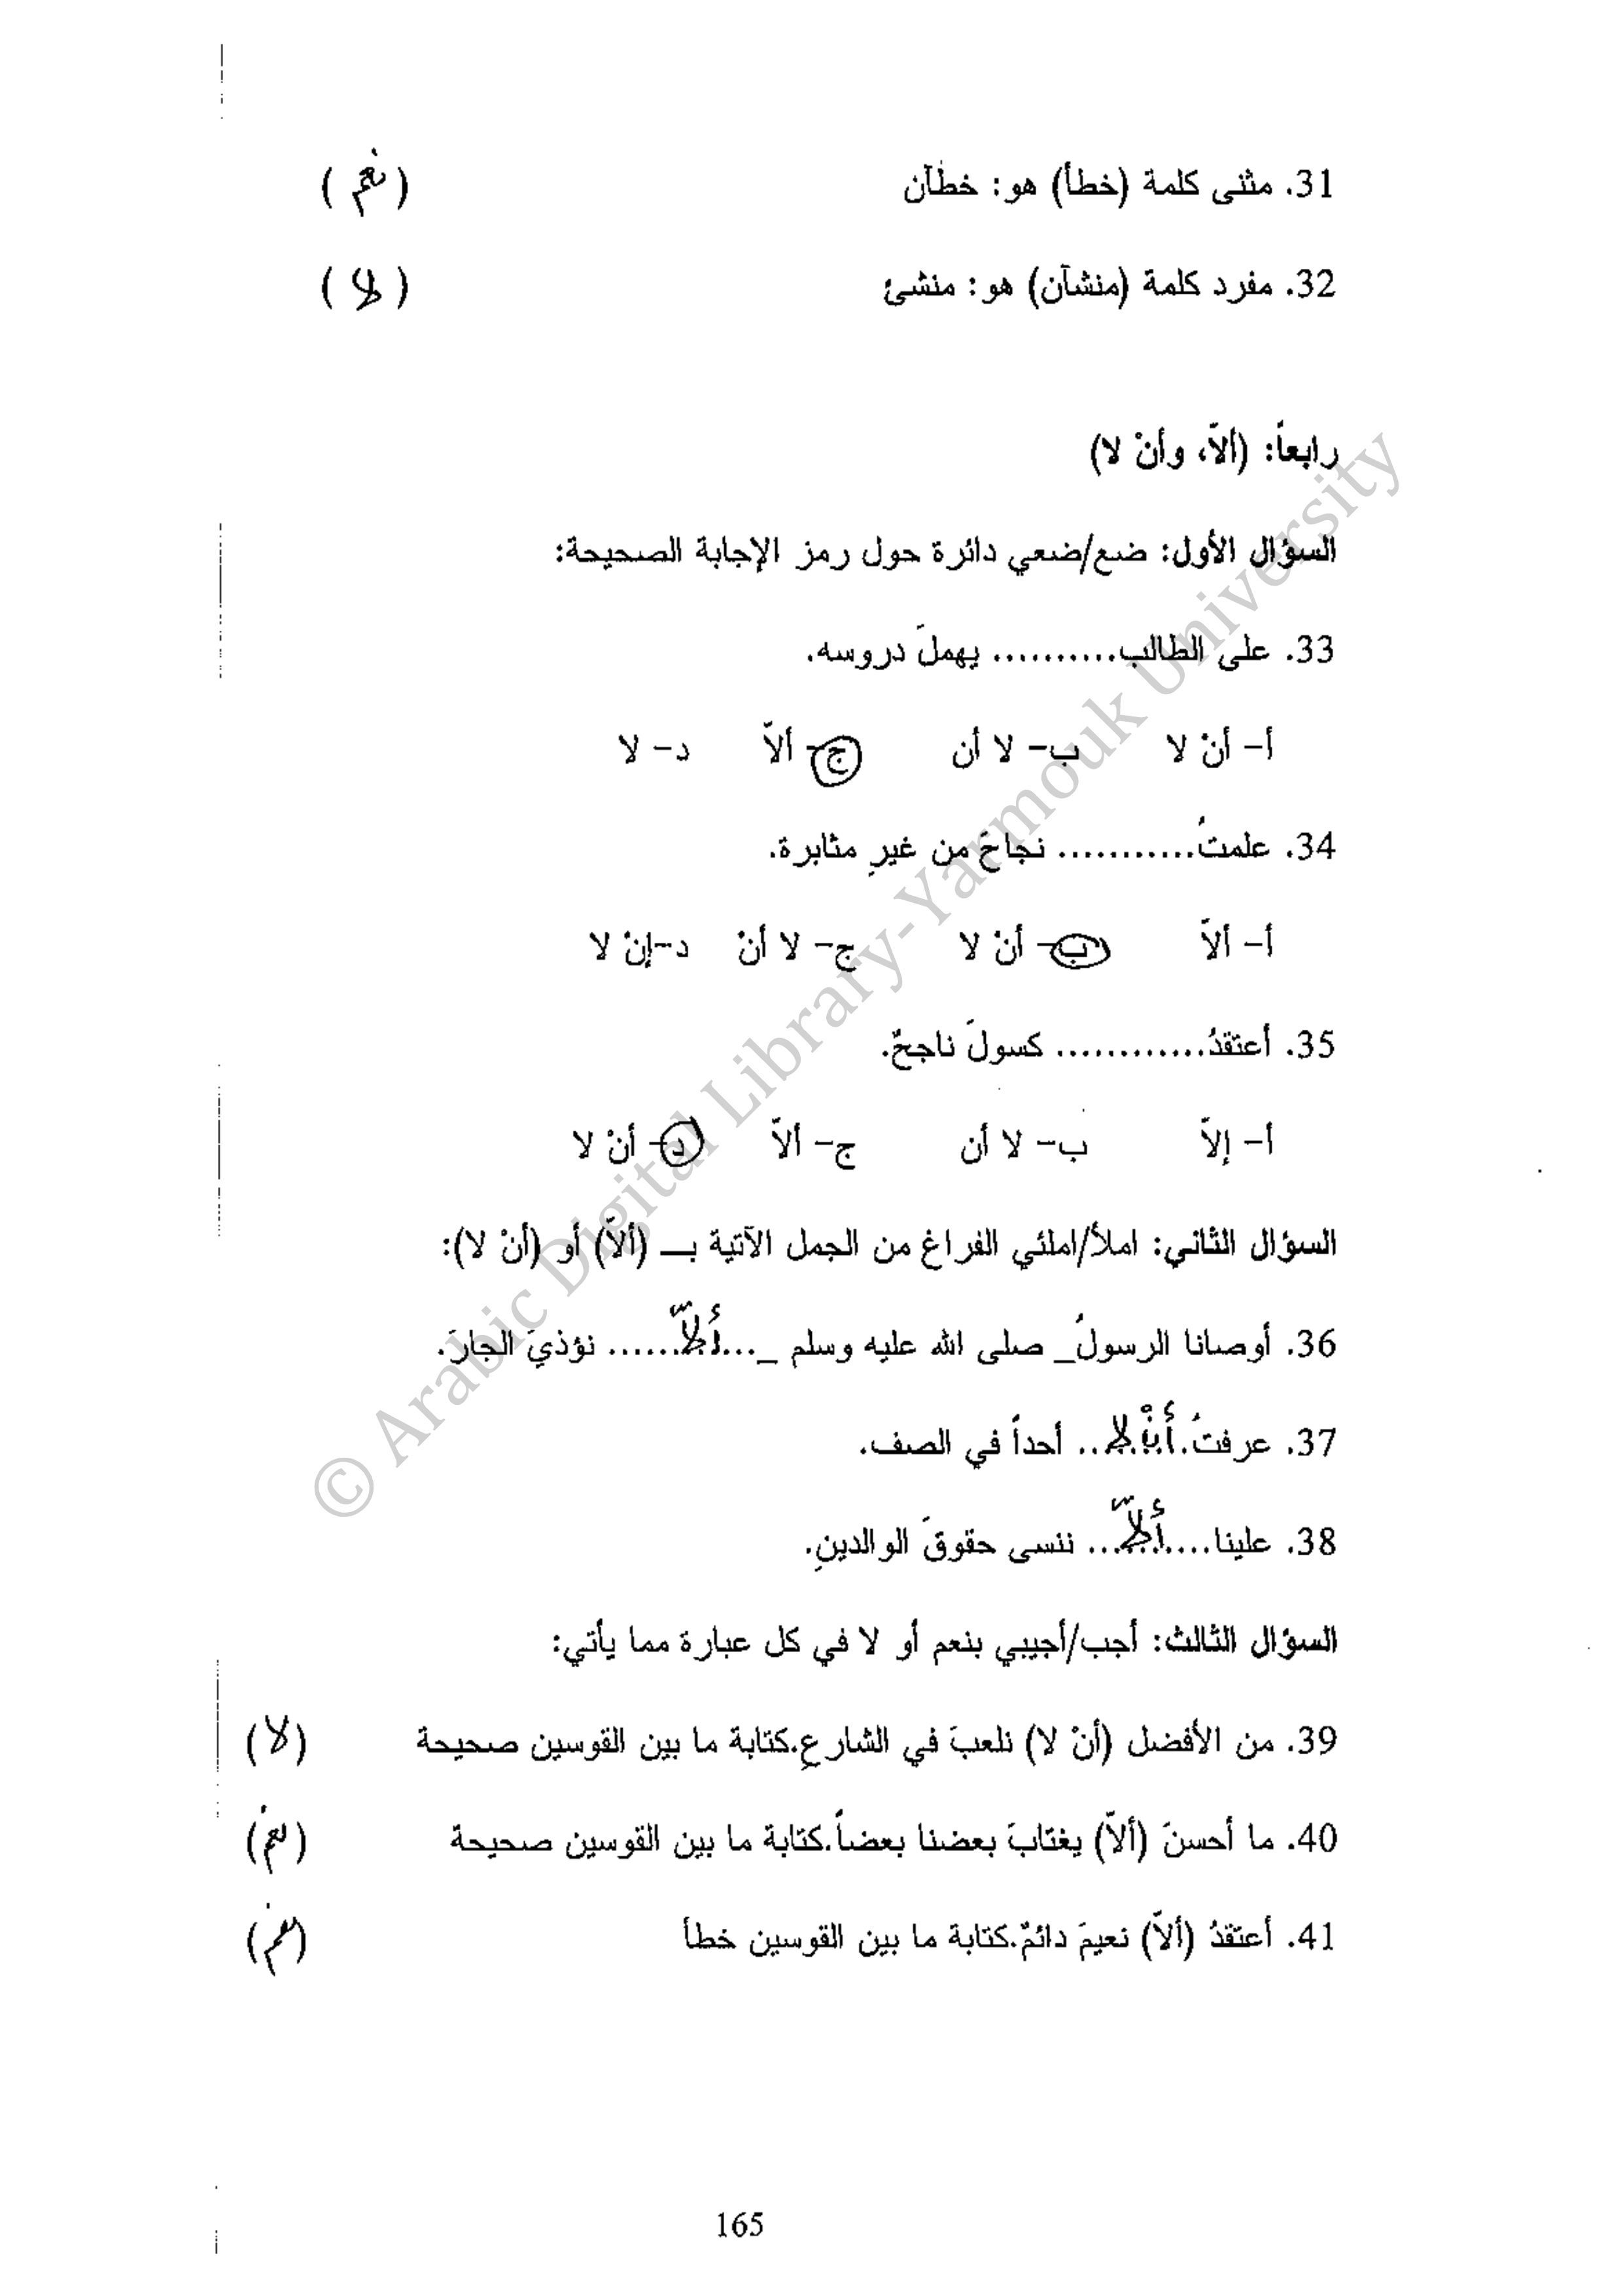 31. مثنى كلمة (خطأ) هو: خطآن ( نعم )
32. مفرد كلمة (منشآن) هو: منشئ ( لا )
رابعاً: (ألاّ، وأنْ لا)
السؤال الأول: ضع/ضعي دائرة حول رمز الإجابة الصحيحة:
33. على الطالب.......... يهملَ دروسه.
أ- أنْ لا ب- لا أن ج- ألاّ د- لا
34. علمتُ........... نجاحَ من غيرِ مثابرة.
أ- ألاّ ب- أنْ لا ج- لا أنْ د-إنْ لا
35. أعتقدُ............ كسولَ ناجحٌ.
أ- إلاّ ب- لا أن ج- ألاّ د- أنْ لا
السؤال الثاني: املأ/املئي الفراغ من الجمل الآتية بـــ (ألاّ) أو (أنْ لا):
36. أوصانا الرسولُ_ صلى الله عليه وسلم _...أَلاّ...... نؤذيَ الجارَ.
37. عرفتُ.أَنْ لا.. أحداً في الصف.
38. علينا....أَلاّ... ننسى حقوقَ الوالدينِ.
السؤال الثالث: أجب/أجيبي بنعم أو لا في كل عبارة مما يأتي:
39. من الأفضل (أنْ لا) نلعبَ في الشارعِ.كتابة ما بين القوسين صحيحة (لا)
40. ما أحسنَ (ألاّ) يغتابَ بعضنا بعضاً.كتابة ما بين القوسين صحيحة (نعم)
41. أعتقدُ (ألاّ) نعيمَ دائمٌ.كتابة ما بين القوسين خطأ (نعم)
165
© Arabic Digital Library-Yarmouk University